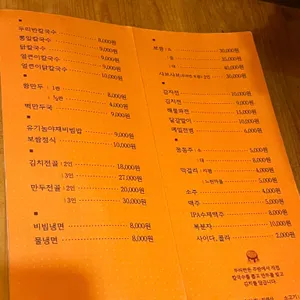 우리밀칼국수
통밀칼국수 8,000원
닭칼국수 9,000원
얼큰칼국수 9,000원
얼큰이닭칼국수 9,000원
10,000원
왕만두 : 1판 8,000원
½판 4,000원
떡만두국 9,000원
유기농야채비빔밥 9,000원
보쌈정식 10,000원
김치전골 : 2인 18,000원
: 3인 27,000원
만두전골 : 2인 20,000원
: 3인 30,000원
비빔냉면 8,000원
물냉면 8,000원
보쌈 : 소 20,000원
30,000원
40,000원
30,000원
감자전 10,000원
김치전 9,000원
해물파전 15,000원
달걀말이 10,000원
메밀전병 6,000원
6,000원
8,000원
막걸리 4,000원
5,000원
소주 4,000원
맥주 5,000원
IPA수제맥주 8,000원
복분자 10,000원
사이다, 콜라 2,000원